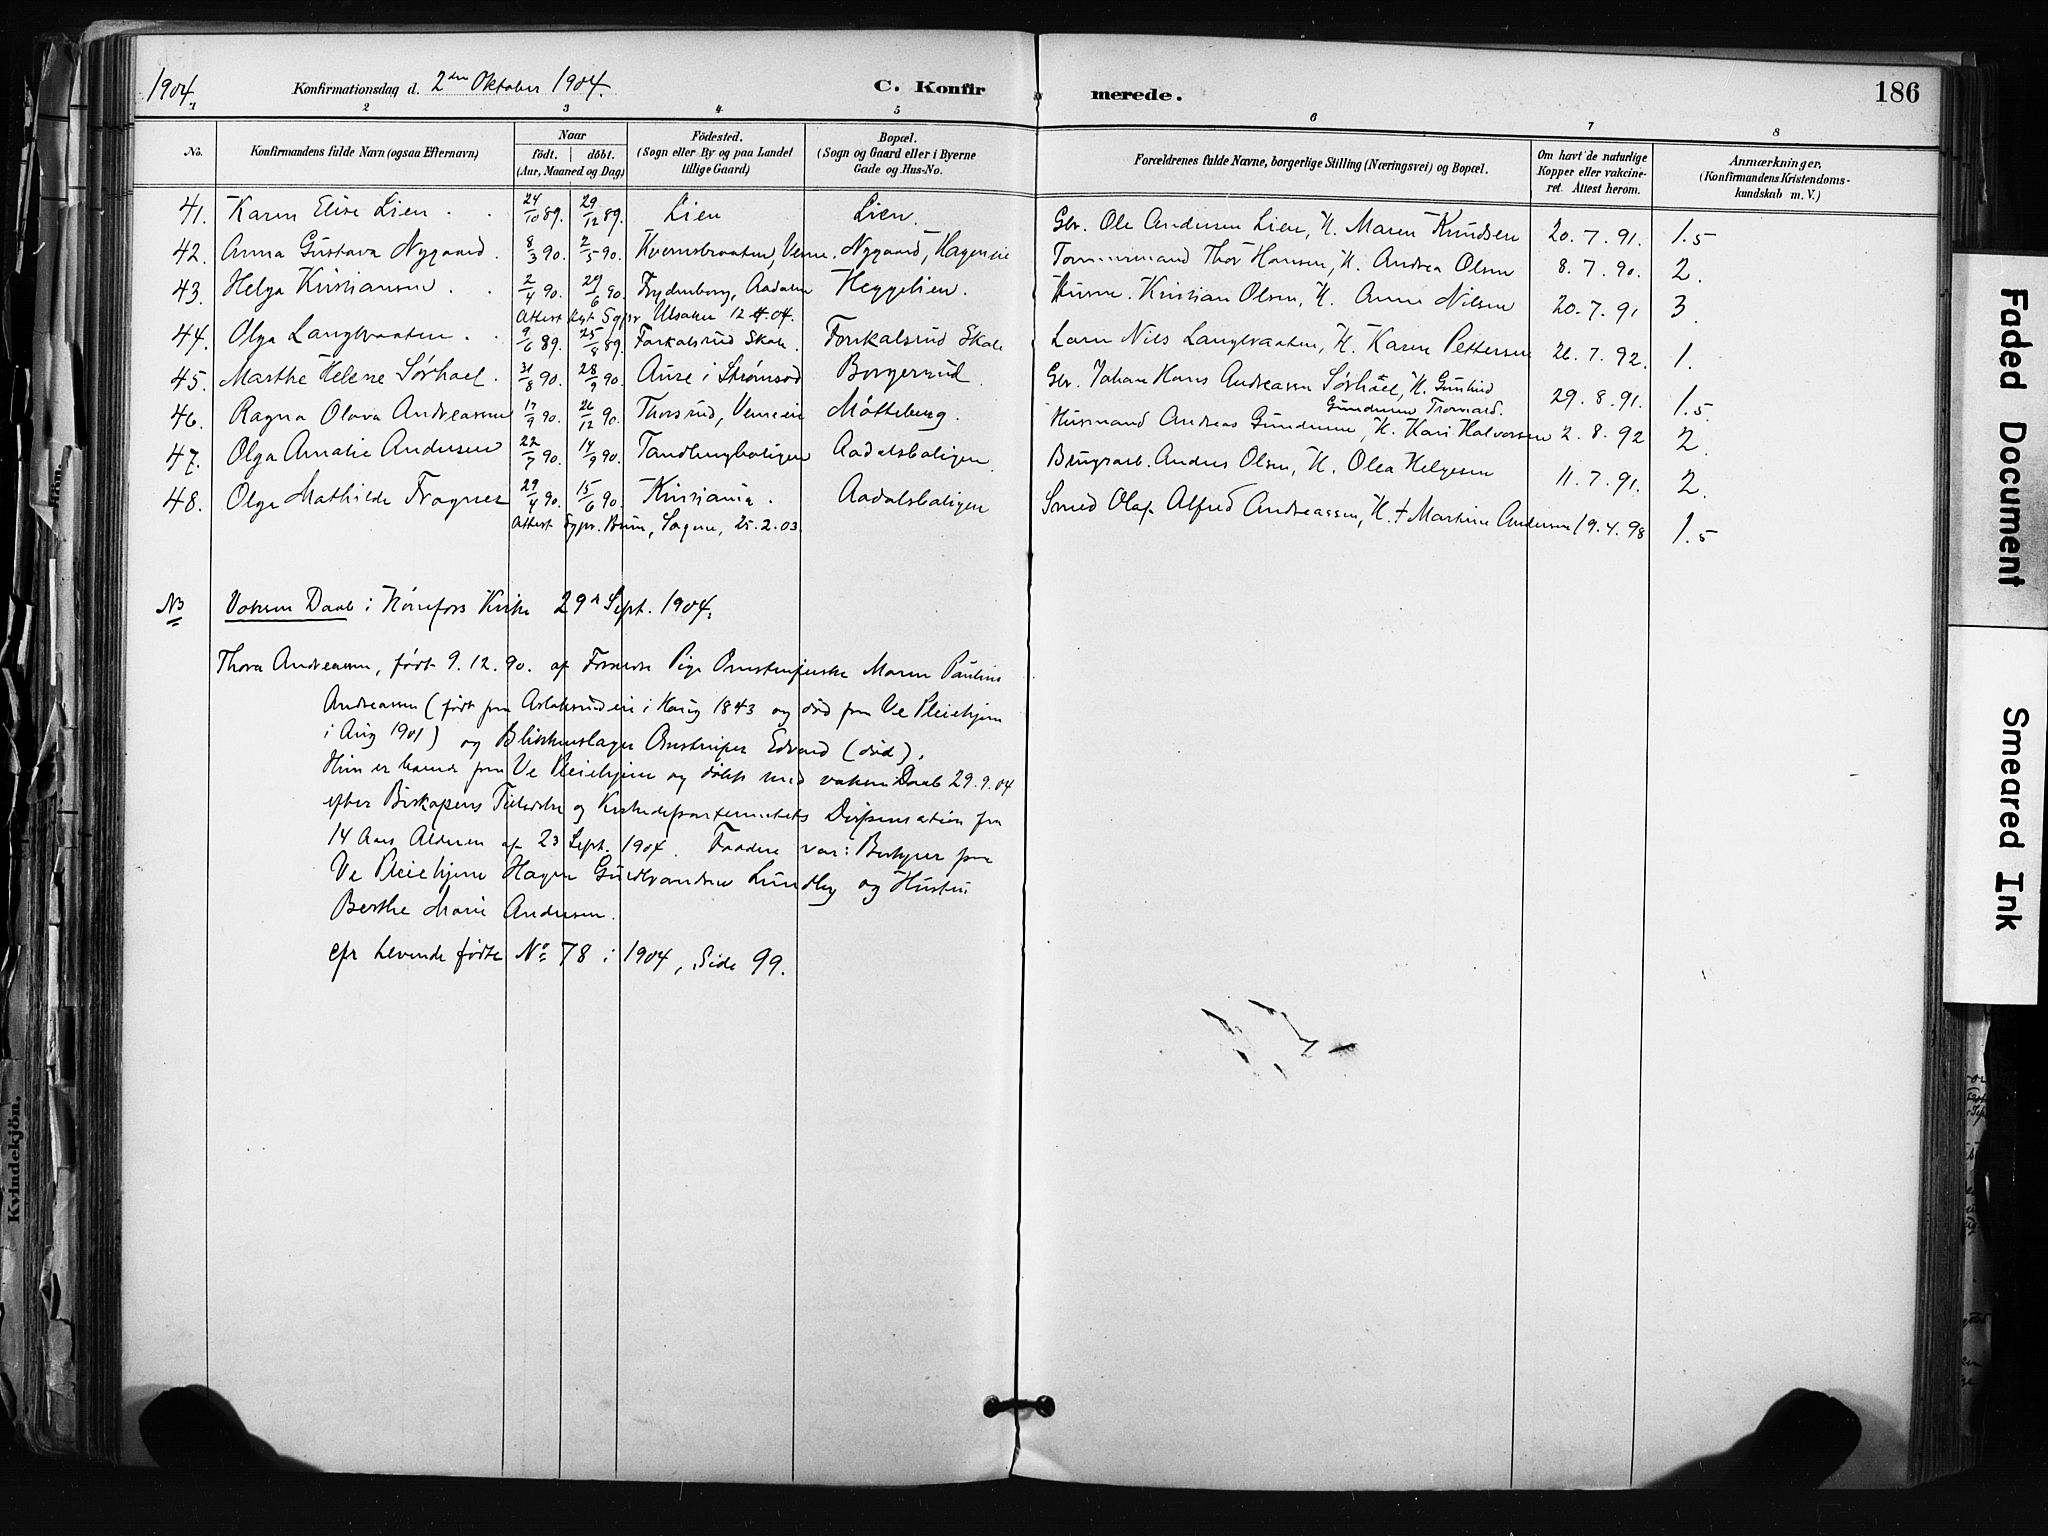 1904. Konfirmationsdag d. 2den Oktober 1904. C. Konfirmerede. 186
1 2 3 4 5 6 7 8
No. Konfirmandens fulde Navn (ogsaa Efternavn) Naar födt. döbt. (Aar, Maaned og Dag) Födested. (Sogn eller By og paa Landet tillige Gaard) Bopæl. (Sogn og Gaard eller i Byerne Gade og Hus-No. Forældrenes fulde Navne, borgerlige Stilling (Næringsvei) og Bopæl. Om havt de naturlige Kopper eller vakcineret. Attest herom. Anmærkninger. (Konfirmandens Kristendomskundskab m. V.)
41. Karen Elise Lien 24/10 89. 29/12 89. Lien Lien. Gbr. Ole Andersen Lien, H. Maren Knudsen 20.7.91. 1.5
42. Anna Gustava Nygaard. 8/3 90. 2/5 90. Kvernbraaten, Veme. Nygaard, Hageneie Tømmermand Thor Hansen, H. Andrea Olsen 8.7.90. 2.
43. Helga Kristiansen 2/4 90. 29/6 90. Frydenberg, Aadalen Heggelien. Kristian Olsen, H. Anne Nilsen 20.7.91 3.
Attest Sgpr. 12.4.04.
44. Olga Langbraaten 9/6 89. 25/8 89. Forkalsrud Skole. Forkalsrud Skole Nils Langbraaten, H. Karen Pettersen 26.7.92. 1.
45. Marthe Helene Sørhoel. 31/8 90. 28/9 90. Aure i Strømsod Borgerud. Gbr. Johan Hans Andreassen Sørhoel, H. Gunhild 29.8.91. 1.5
46. Ragna Olava Andreassen 17/9 90. 26/12 90. Thorsrud, Vemeeie Møtteberg. Husmand Andreas Gundersen, H. Kari Halvorsen 2.8.92 2.
47. Olga Amalie Andersen 22/7 90. 14/9 90. Tandbergboligen Aadalsboligen Brugsarb. Anders Olsen, H. Olea Helgesen 11.7.91. 2.
48. Olga Mathilde Fragnes 29/4 90. 15/6 90. Kristiania. Aadalsboligen Smed Olaf Alfred Andreassen, H. † Martine Andersen 19.4.98 1.5
Attest Sgpr. Bruun, Sagene, 25.2.03.
NB Voksen Daab i Hønefos Kirke 29de Sept. 1904.
Thora Andreassen, født 9.12.90. af Pige Maren Pauline
Andreassen (født paa i Haug 1843 og død paa Ve Pleiehjem
i Aug 1901) og Blikkenslager Edvard (død).
Hun er paa Ve Pleiehjem og døbt med voksen Daab 29.9.04
efter Biskopens Tilladelse og Kirkedepartementets Dispensation fra
14 Aars Alderen af 23 Sept. 1904. Faddere var: Bestyrer paa
Ve Pleiehjem Hagen Gudbrandsen Lundby og Hustru
Berthe Marie Andersen.
cfr Levende fødte No 78 i 1904, Side 99.
Kvindekjön.
Faded Document
Smeared Ink